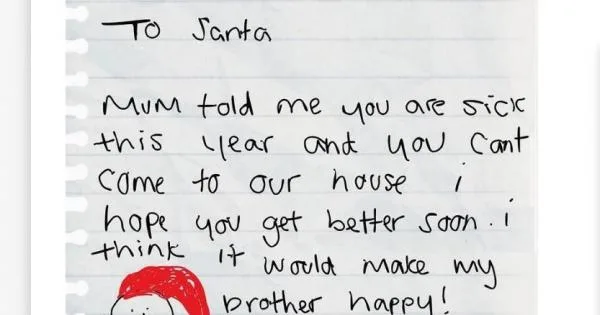 To Santa
Mum told me you are sick
this year and you cant
come to our house i
hope you get better soon. i
think it would make my
brother happy!